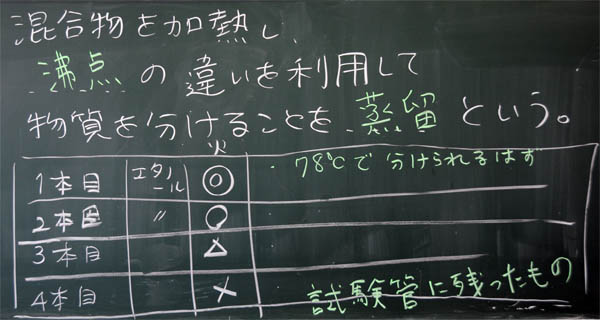 混合物を加熱し、
沸点の違いを利用して
物質を分けることを蒸留という。
火
1本目 エタノール ◎ ・78℃で分けられるはず
2本目 〃 ○
3本目 △
4本目 × 試験管に残ったもの